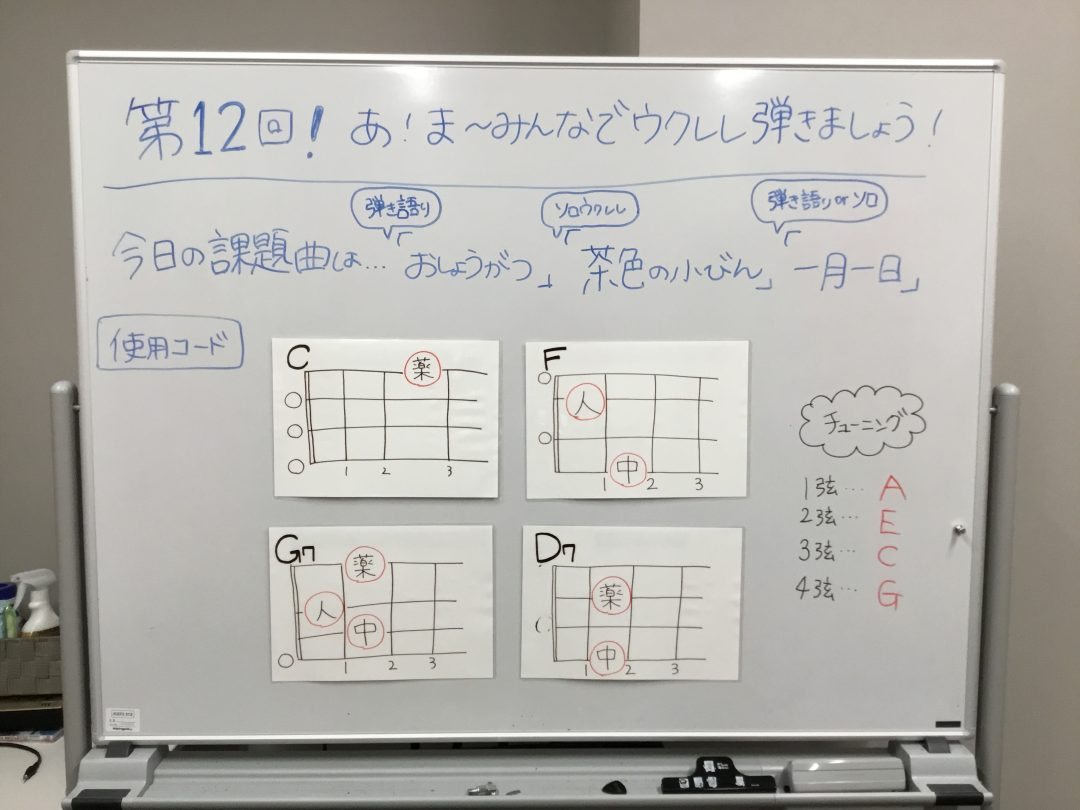 第12回! あ!ま〜みんなでウクレレ弾きましょう!
弾き語り
ソロウクレレ
弾き語り or ソロ
今日の課題曲は… おしょうがつ」 茶色の小びん」 一月一日」
使用コード
C
薬
1 2 3
F
人
中
1 2 3
G7
薬
人
中
1 2 3
D7
薬
中
1 2 3
チューニング
1弦… A
2弦… E
3弦… C
4弦… G